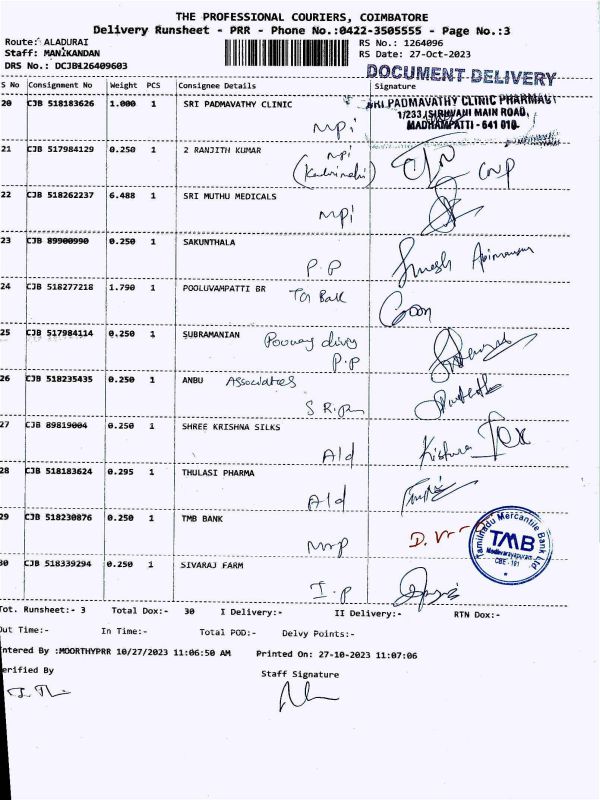 THE PROFESSIONAL COURIERS, COIMBATORE
Delivery Runsheet - PRR - Phone No.:0422-3505555 - Page No.:3
Route: ALADURAI RS No.: 1264096
Staff: MANIKANDAN RS Date: 27-Oct-2023
DRS No.: DCJB126409603
DOCUMENT DELIVERY
S No Consignment No Weight PCS Consignee Details Signature
20 CJB 518183626 1.000 1 SRI PADMAVATHY CLINIC
SRI PADMAVATHY CLINIC PHARMACY
1/233, SIRUVANI MAIN ROAD,
MADHAMPATTI - 641 010.
mpi
21 CJB 517984129 0.250 1 2 RANJITH KUMAR
mpi
22 CJB 518262237 6.488 1 SRI MUTHU MEDICALS
mpi
23 CJB 89900990 0.250 1 SAKUNTHALA
P.P
24 CJB 518277218 1.790 1 POOLUVAMPATTI BR
25 CJB 517984114 0.250 1 SUBRAMANIAN
P.P
26 CJB 518235435 0.250 1 ANBU Associates
27 CJB 89819004 0.250 1 SHREE KRISHNA SILKS
Ald
28 CJB 518183624 0.295 1 THULASI PHARMA
Ald
29 CJB 518230876 0.250 1 TMB BANK
Tamilnadu Mercantile Bank Ltd
TMB
Madhvarayapuram
CBE - 191
30 CJB 518339294 0.250 1 SIVARAJ FARM
I.P
Tot. Runsheet:- 3 Total Dox:- 30 I Delivery:- II Delivery:- RTN Dox:-
Out Time:- In Time:- Total POD:- Delvy Points:-
ntered By :MOORTHYPRR 10/27/2023 11:06:50 AM Printed On: 27-10-2023 11:07:06
erified By Staff Signature